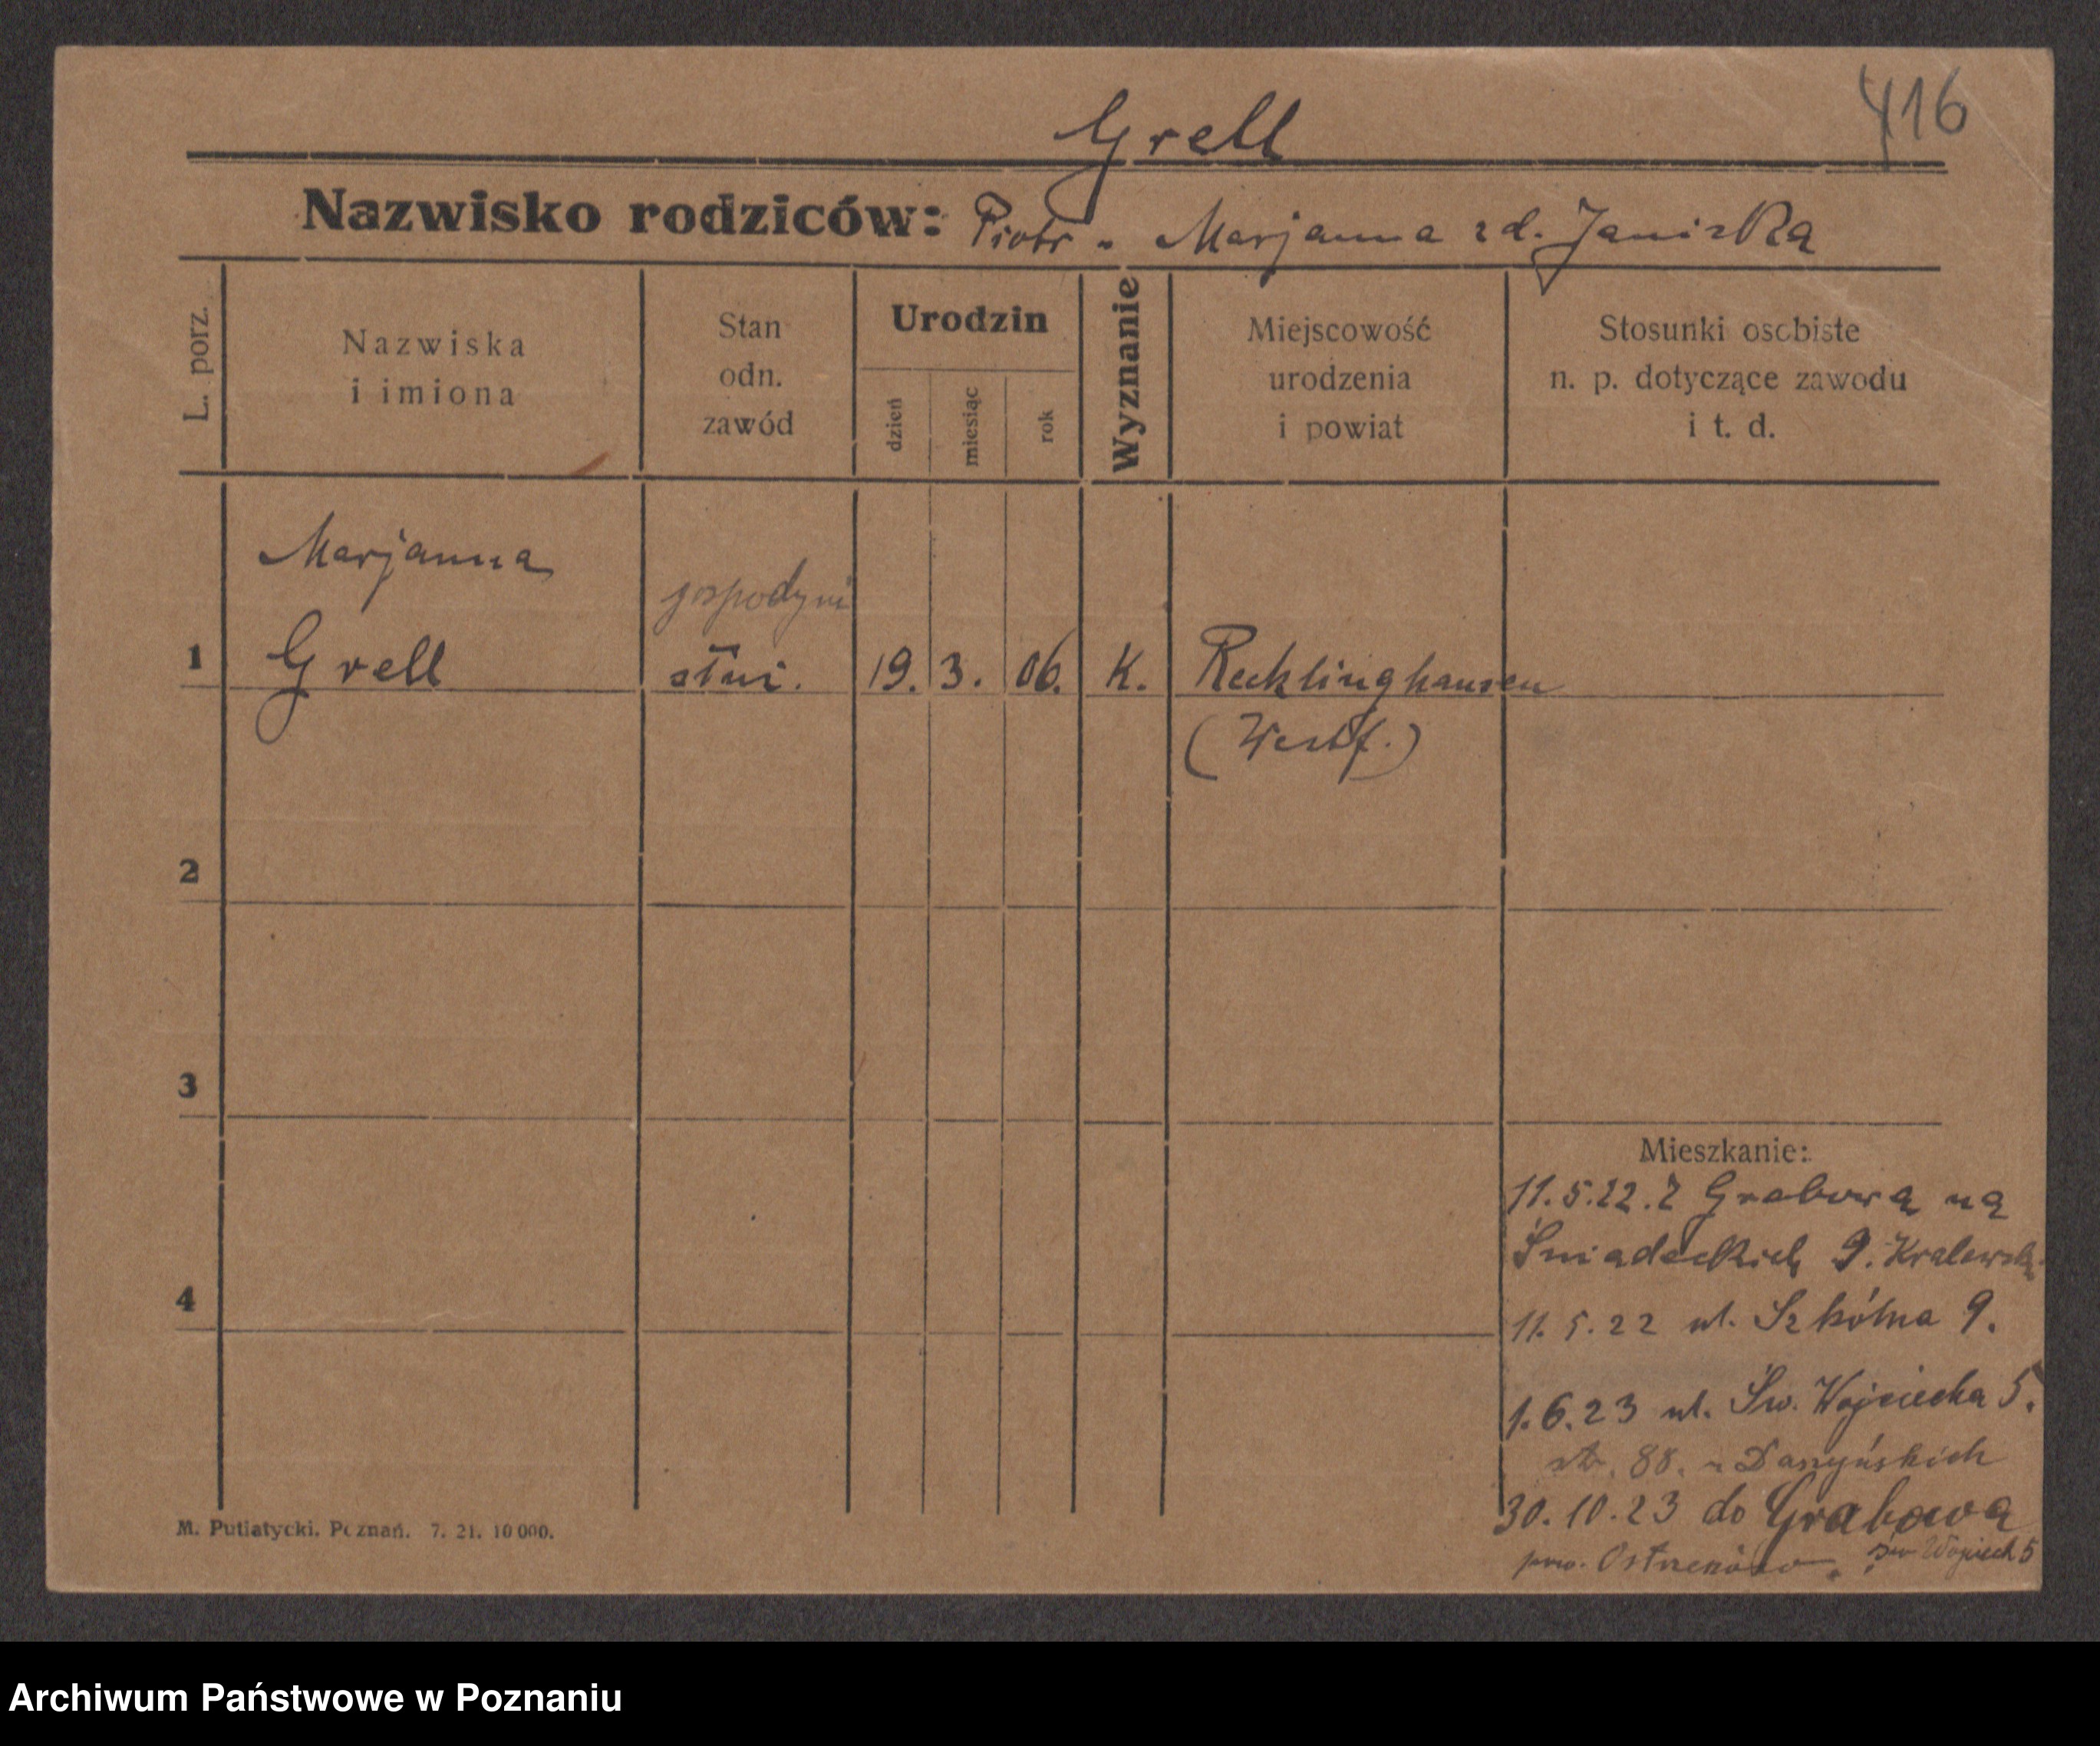 416
Grell
Nazwisko rodziców: Piotr - Marjanna zd. Janiszka
L. porz.
Nazwiska
i imiona
Stan
odn.
zawód
Urodzin
dzień
miesiąc
rok
Wyznanie
Miejscowość
urodzenia
i powiat
Stosunki osobiste
n. p. dotyczące zawodu
i t. d.
Marjanna
gospodyni
1 Grell 19. 3. 06. K. Recklinghausen
(Westf.)
2
3
4
Mieszkanie:
11.5.22. z Grabowa na
Śniadeckich 9.
11.5.22 ul. Szkólna 9.
1.6.23 ul. Św. Wojciecha 5.
88. Daszyńskich
30.10.23 do Grabowa
pow. św Wojciech 5
M. Putiatycki. Poznań. 7. 21. 10 000.
Archiwum Państwowe w Poznaniu